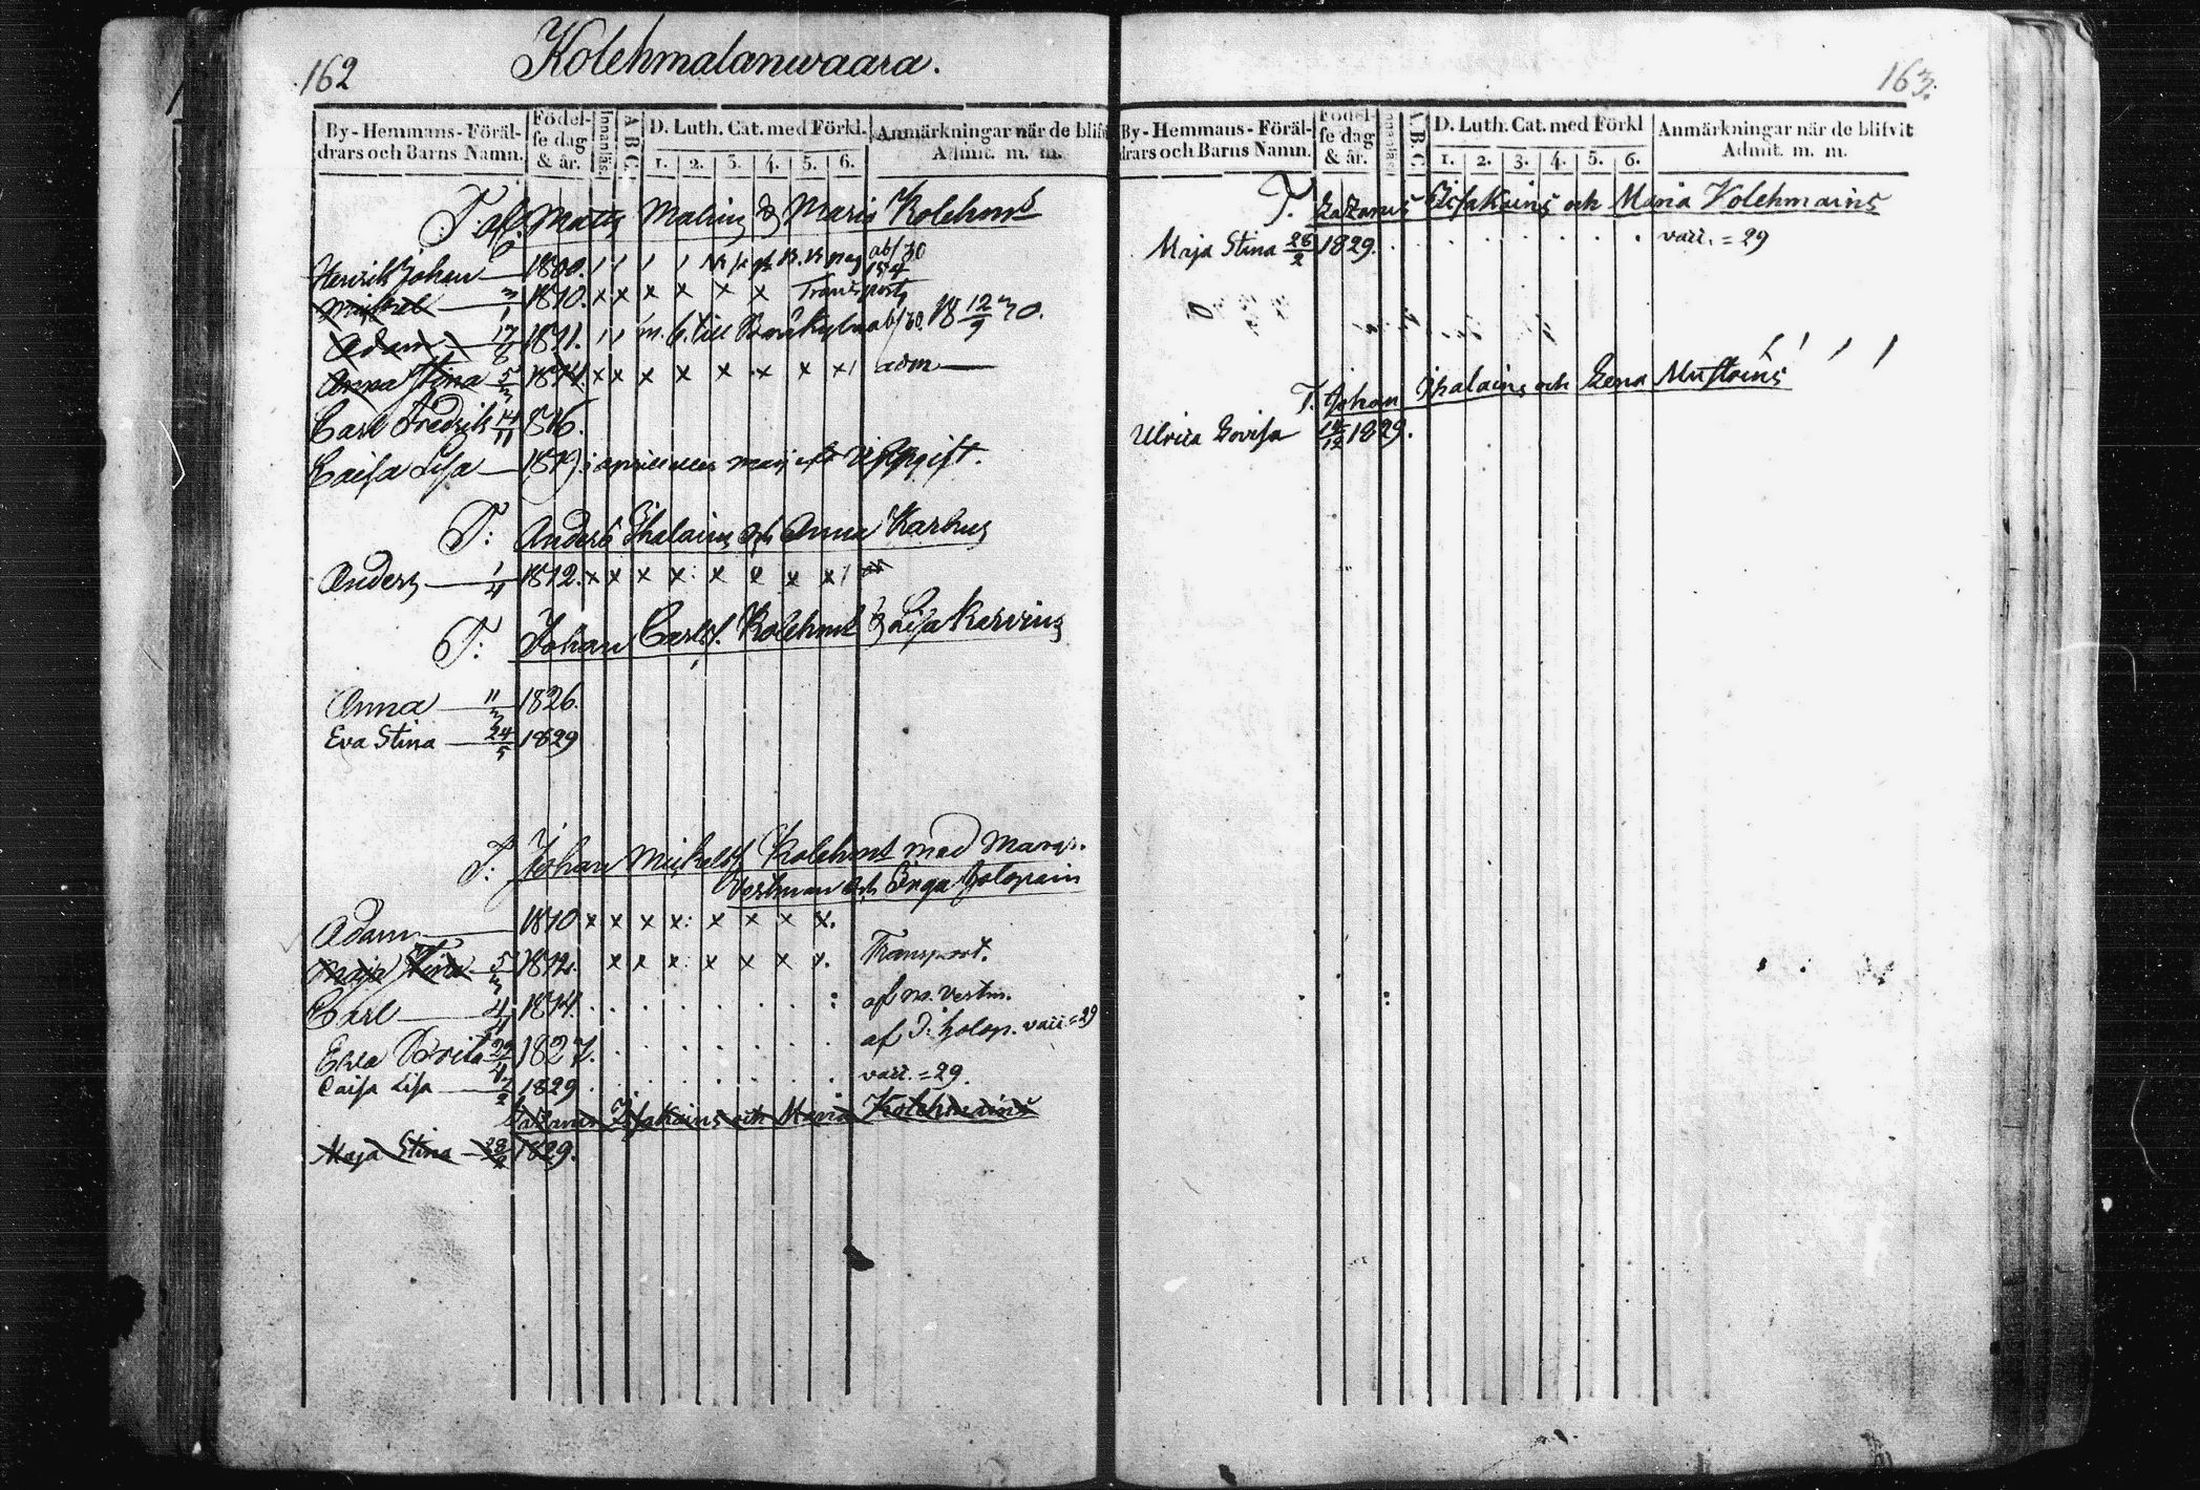 162
Kolehmalanwaara.
By-Hemmans-Föräl-
drars och Barns Namn.
Födel-
se dag
& år.
Innanläs.
A B C
D. Luth. Cat. med Förkl.
1. 2. 3. 4. 5. 6.
Anmärkningar när de blifv
Admit. m. m.
T. af. Matts & Maria Kolehms
Henrik Johan 1800.
Michel 1810. x x x x x x Transport
Adam 17/8 1811. m. b. till ab/30. 18 12/9 30.
Anna Stina 5/3 1814. x x x x x x x x adm
Carl Fredrik 14/11 1816.
Caisa Lisa 1819. i april eller maij efter uppgift.
T: Anders Ihalains och Anna Karhus
Anders 1/4 1812. x x x x: x x x x
T: Johan Carlss. Kolehms & Lisa Karvins
Anna 11/3 1826.
Eva Stina 24/5 1829
T: Johan Mickelss. Kolehms med Margr.
Vestman och Inga Holopain
Adam 1810 x x x x: x x x x.
Maja Stina 5/3 1812. x x x: x x x x. Transport.
Carl 4/4 1814. af M. Vestm.
Ewa Brita 22/4 1827. af I: Holop. vacc. = 29
Caisa Lisa 1829. vacc. = 29.
Lazarus Issakains och Maria Kolehmains
Maja Stina 28/2 1829.
163.
By-Hemmans-Föräl-
drars och Barns Namn.
Födel-
se dag
& år.
Innanläs.
A B C
D. Luth. Cat. med Förkl
1. 2. 3. 4. 5. 6.
Anmärkningar när de blifvit
Admit. m. m.
T. Lazarus Issakains och Maria Kolehmains
Maja Stina 28/2 1829. vacc. = 29
T. Johan Ihalains och Lena Mustoins
Ulrica Lovisa 14/12 1829.